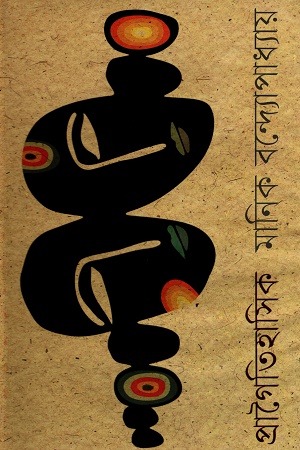 প্রাগৈতিহাসিক মানিক বন্দ্যোপাধ্যায়